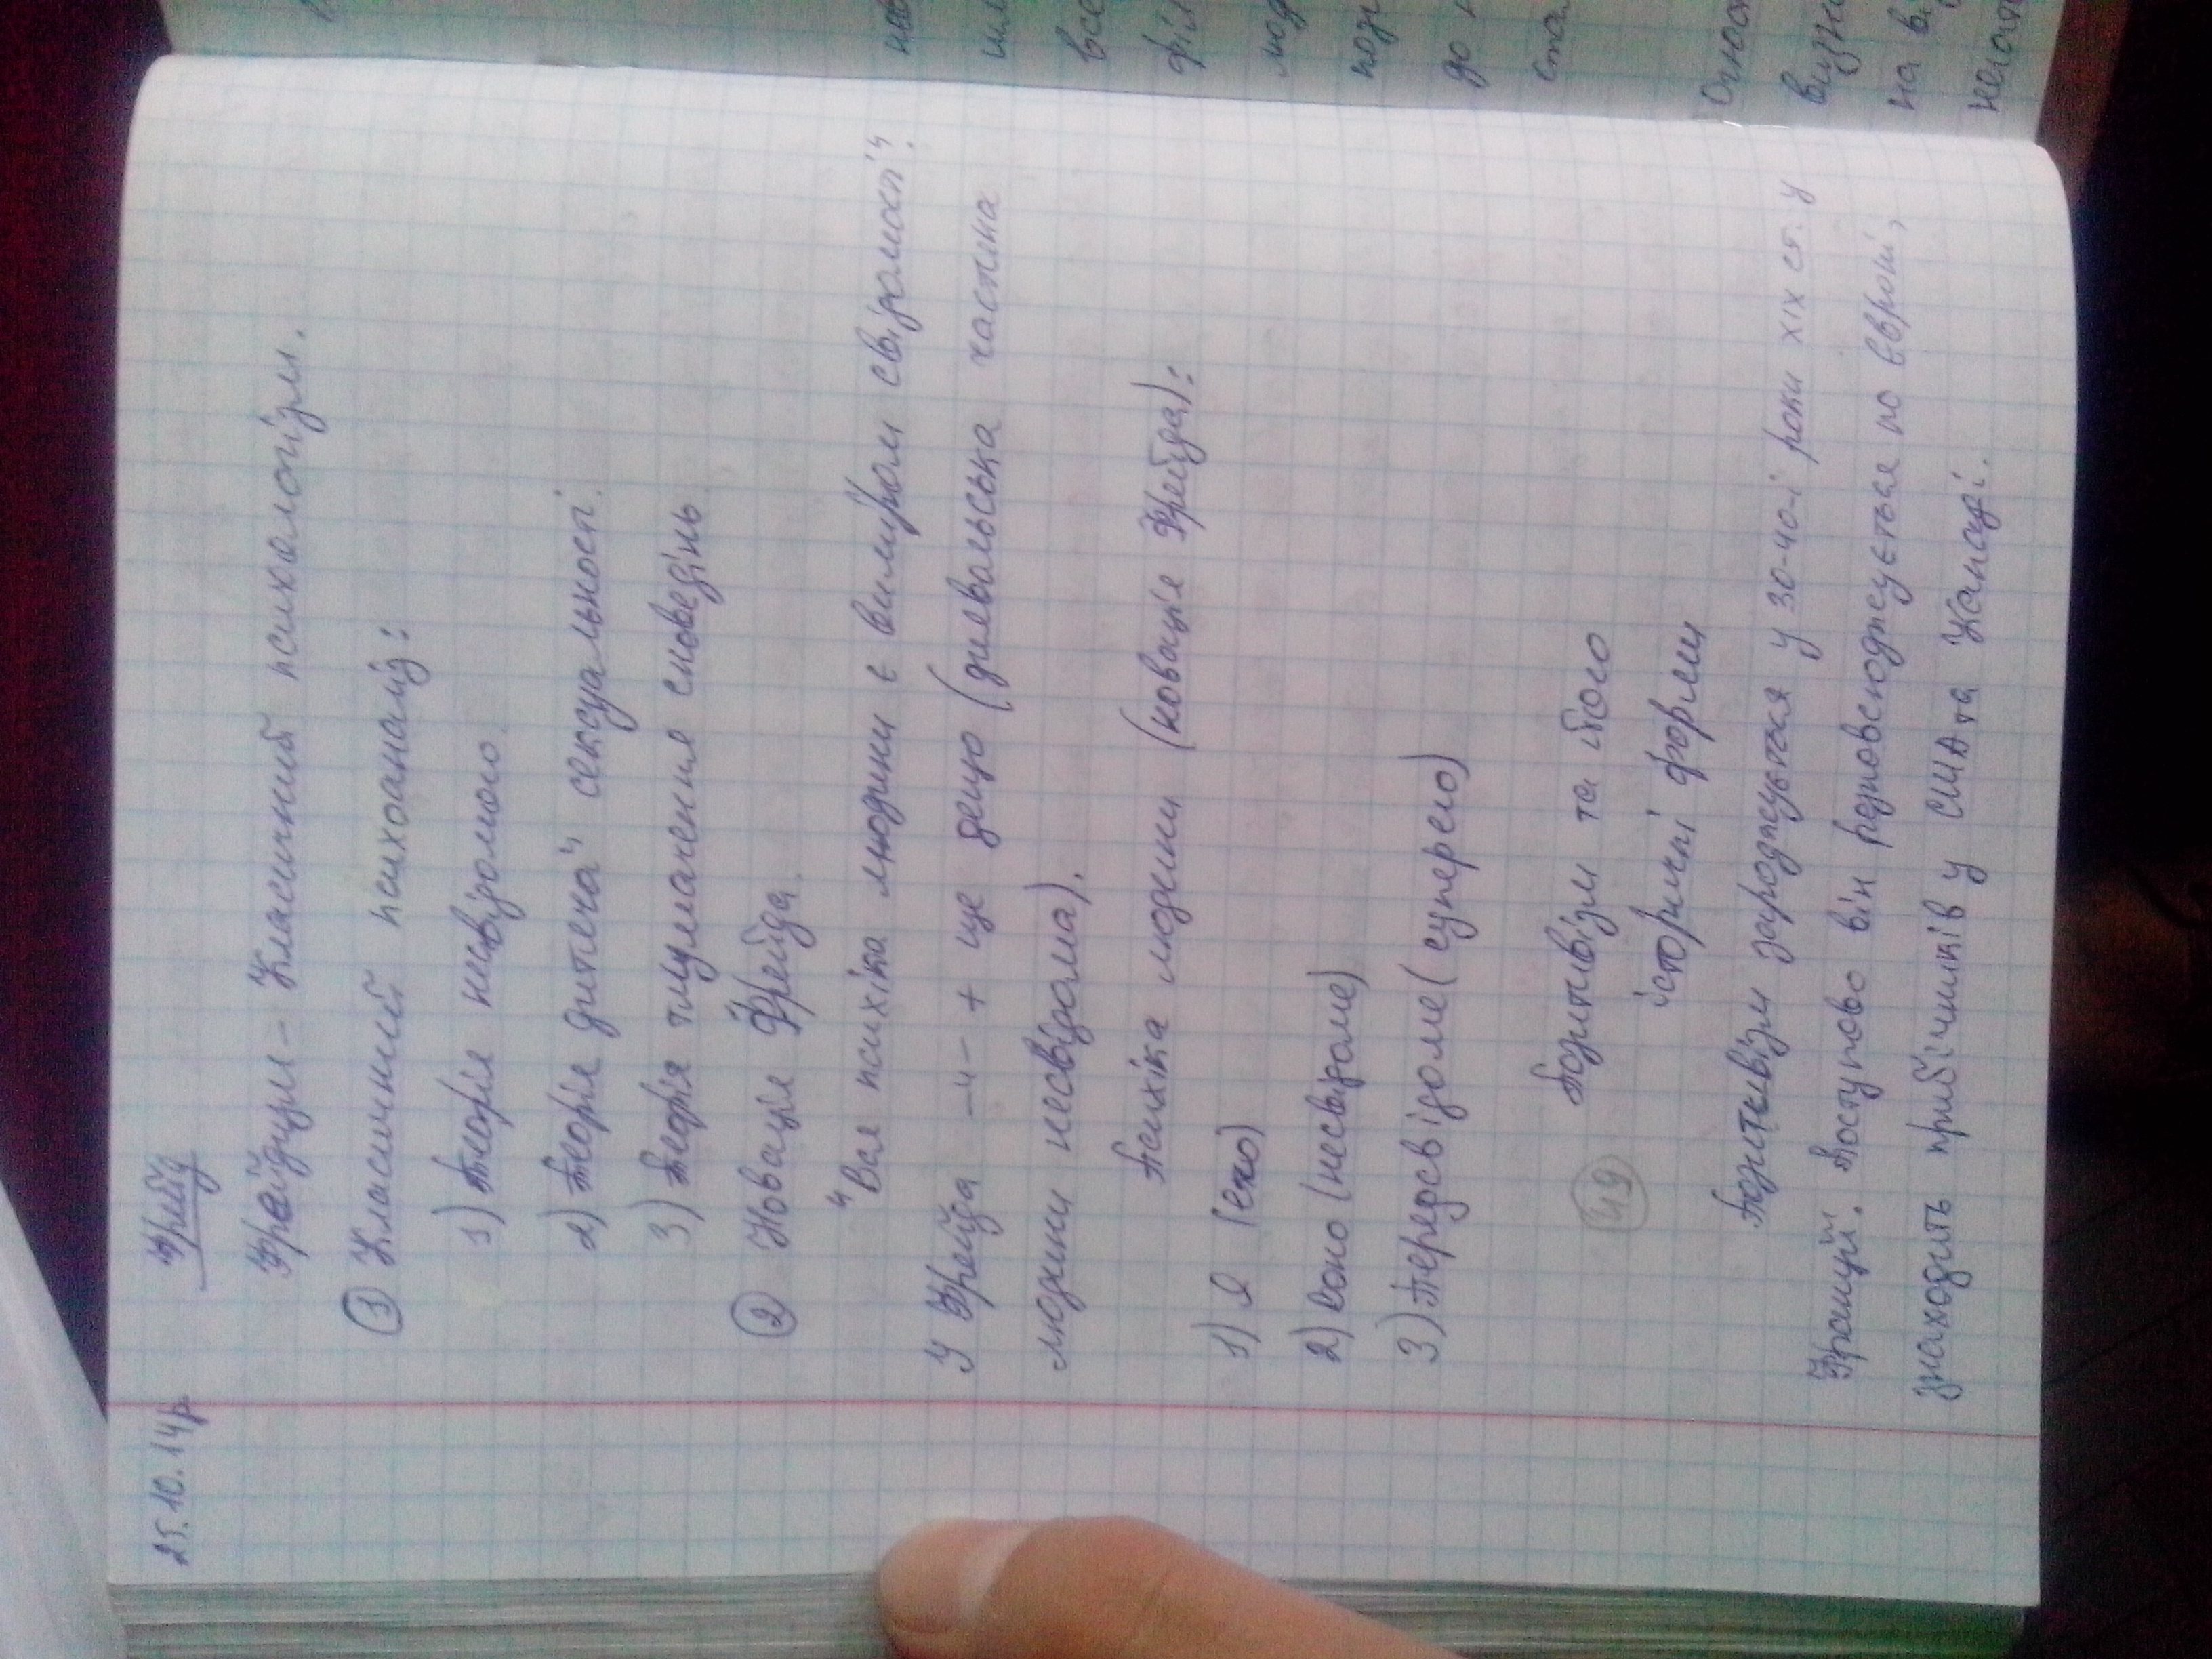 25.10.14р. Фрейд
Фрейдизм - Класичний психологізм.
① Класичний психоаналіз:
1) Теорія несвідомого.
2) Теорія дитяча" сексуальності.
3) Теорія тлумачення сноведінь
② Новація Фрейда.
"Вся психіка людини є виміром свідомості".
У Фрейда -"- + ще дещо (диявольська частина
людини несвідома).
Психіка людини (новація Фрейда):
1) Я (его)
2) Воно (несвідоме)
3) Передсвідоме (суперего)
Позитивізм та його
49
історичні форми
Позитивізм зароджується у 30-40-і роки XIX ст. у
Франції. Поступово він розповсюджується по Європі,
знаходить прибічників у США та Канаді.